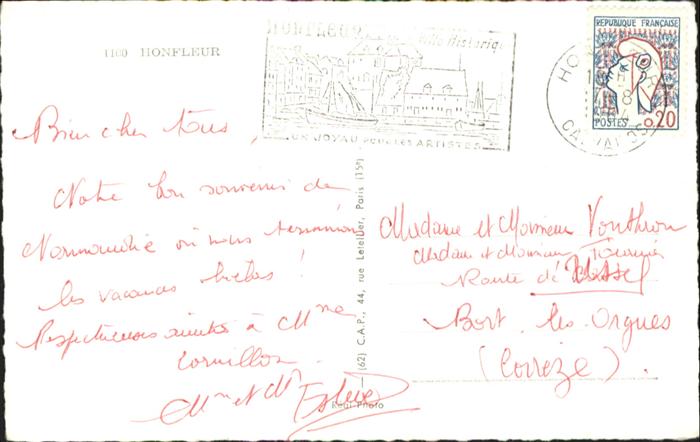 1100 HONFLEUR
HONFLEUR Ville Historique
UN JOYAU POUR LES ARTISTES
REPUBLIQUE FRANÇAISE
POSTES 0,20
CALVADOS
Bien cher tous,
Notre bon souvenir de
Normandie où nous terminons
les vacances hélas !
Respectueuses amitiés à Mme
Cornillon.
Mme et Mr
(62) C.A.P., 44, rue Letellier, Paris (15e)
Real-Photo
Madame et Monsieur Vonthron
Madame et Monsieur Tournier
Route de
Bort-les-Orgues
(Corrèze)